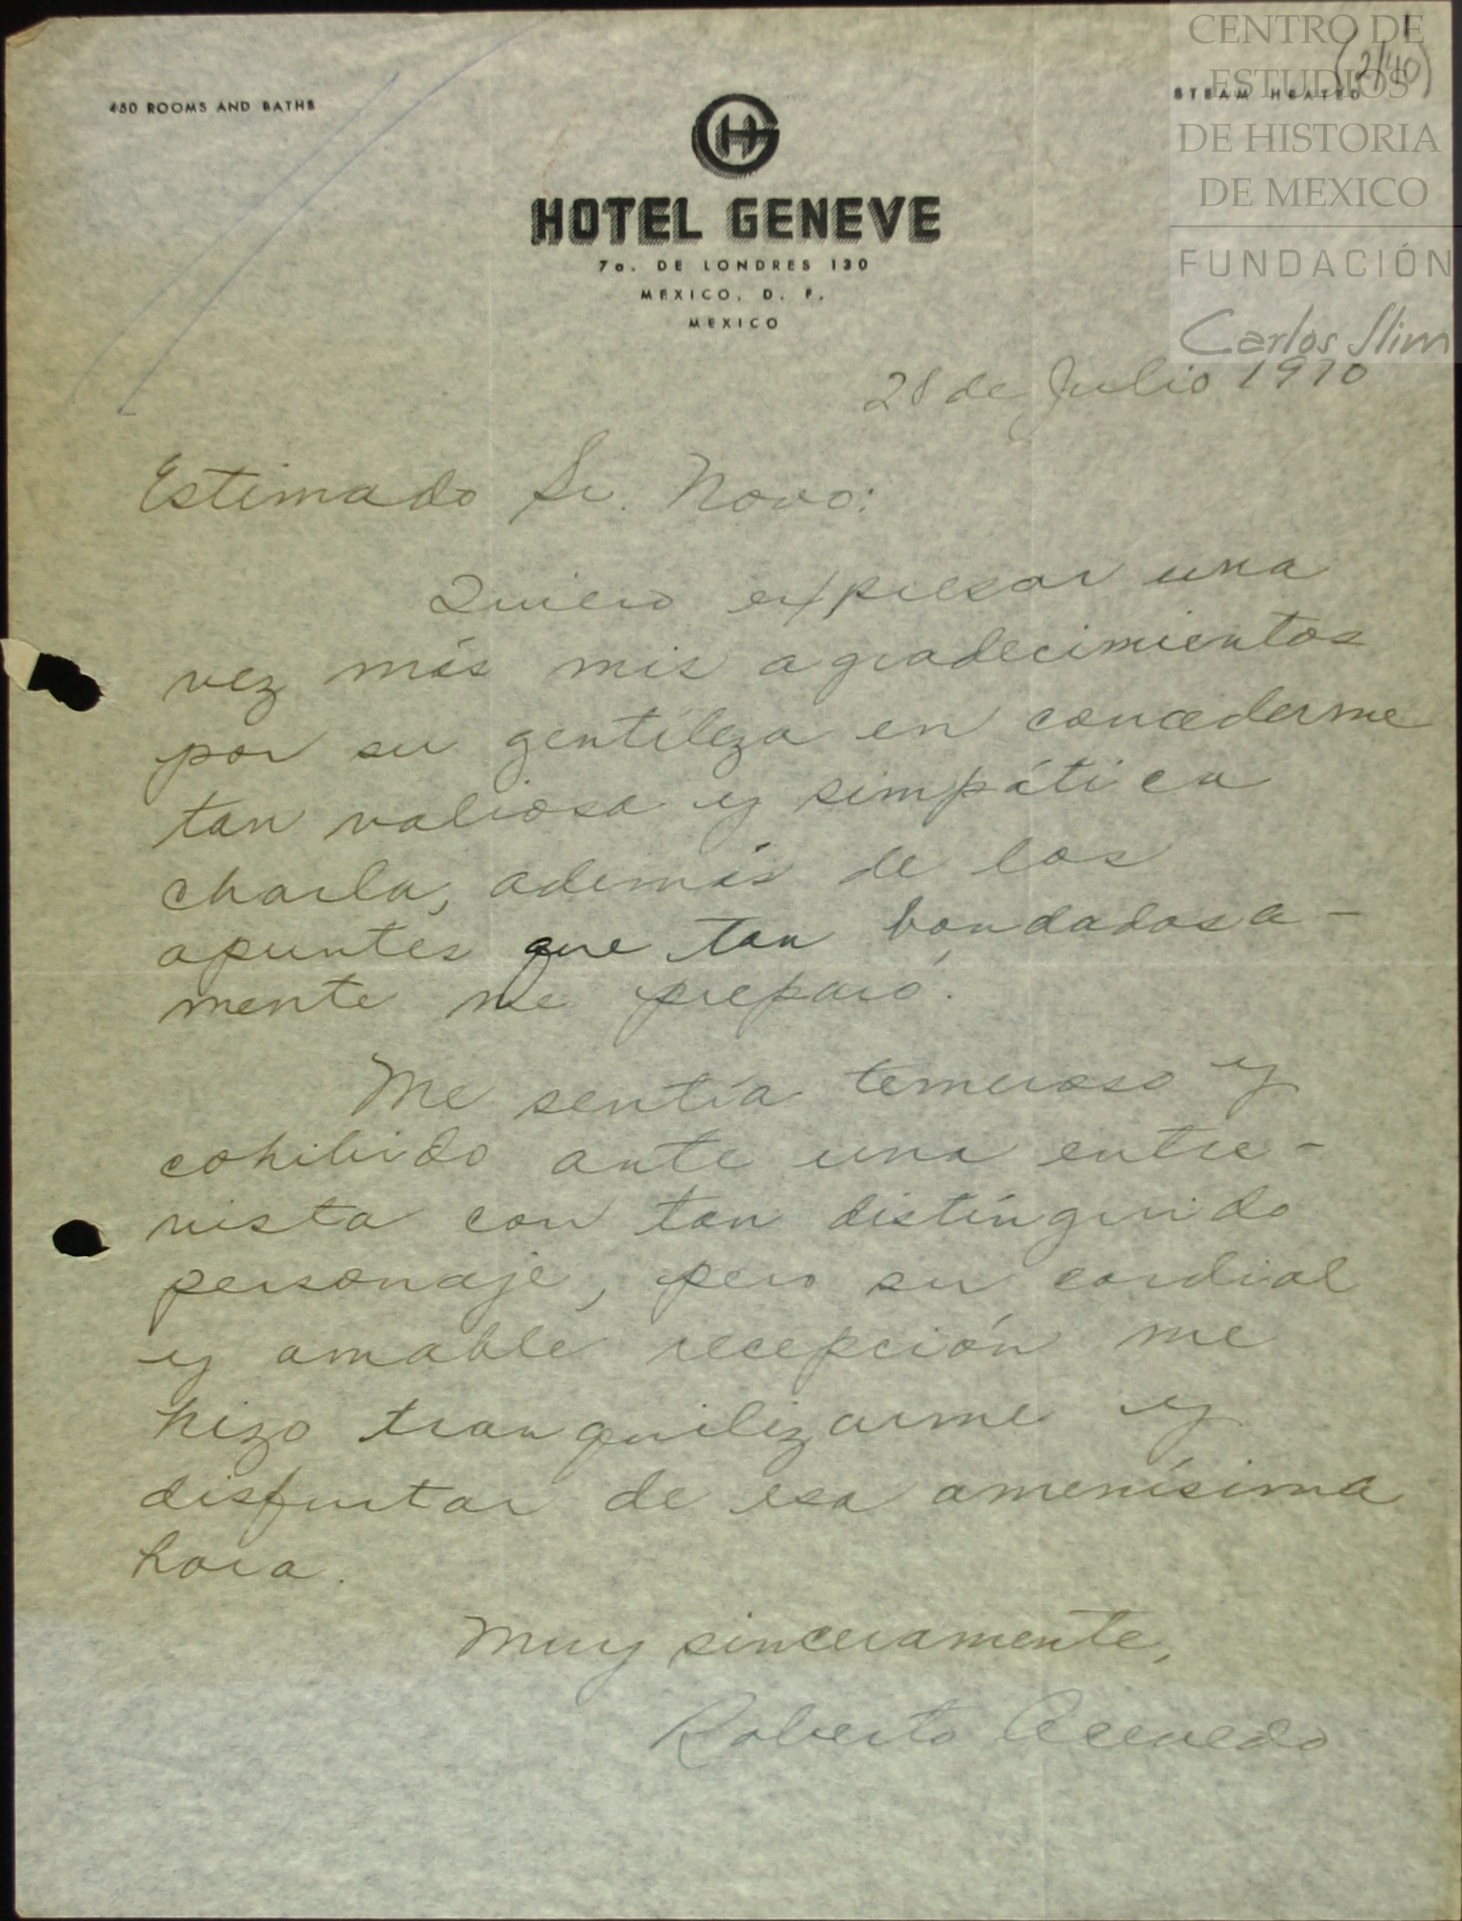 CENTRO DE
ESTUDIOS
DE HISTORIA
DE MEXICO
FUNDACIÓN
Carlos Slim
(2/40)
450 ROOMS AND BATHS
STEAM HEATED
GH
HOTEL GENEVE
7a. DE LONDRES 130
MEXICO, D. F.
MEXICO
28 de Julio 1970
Estimado Sr. Novo:
Quiero expresar una
vez más mis agradecimientos
por su gentileza en concederme
tan valiosa y simpática
charla, además de los
apuntes que tan bondadosa-
mente me preparó.
Me sentía temeroso y
cohibido ante una entre-
vista con tan distinguido
personaje, pero su cordial
y amable recepción me
hizo tranquilizarme y
disfrutar de esa amenísima
hora.
Muy sinceramente,
Roberto Acevedo